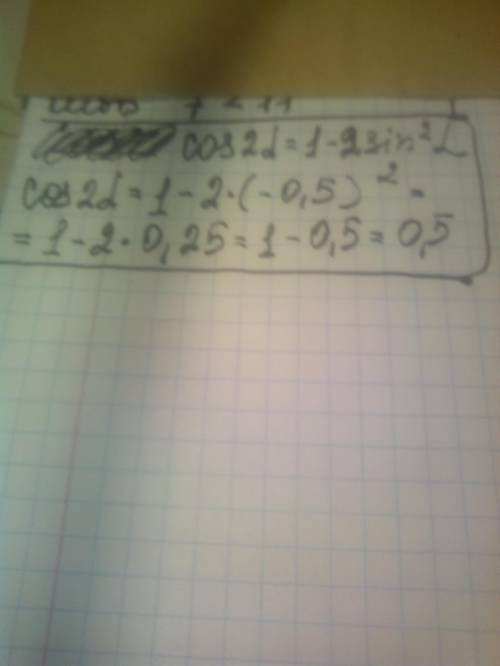 cos2α = 1 - 2sin²α
cos2α = 1 - 2 · (-0,5)² =
= 1 - 2 · 0,25 = 1 - 0,5 = 0,5